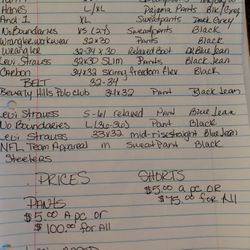 Hanes L/XL Pajama Pants Blk/Grey
And 1 XL Sweatpants Dark Grey
No Boundaries XS (29) Sweatpants Black
Wrangler Workwear 32x30 Pants Black
Wrangler 32-34 x 30 Relaxed Boot Dk Blue Jean
Levi Strauss 32x30 Slim Pants Black Jean
Carbon 34x32 Skinny freedom flex Black
BELT 32-34
Beverly Hills Polo Club 34x32 Pant Black Jean
Levi Strauss relaxed Pant Blue Jean
No Boundaries L (36-38) Pant Black
Levi Strauss 33x32 mid-rise straight Blue Jean
NFL Team Apparel m Sweat Pant Black
Steelers
PRICES SHORTS
$5.00 a pc OR
$75.00 for All
PANTS
$5.00 A pc or
$100.00 for All